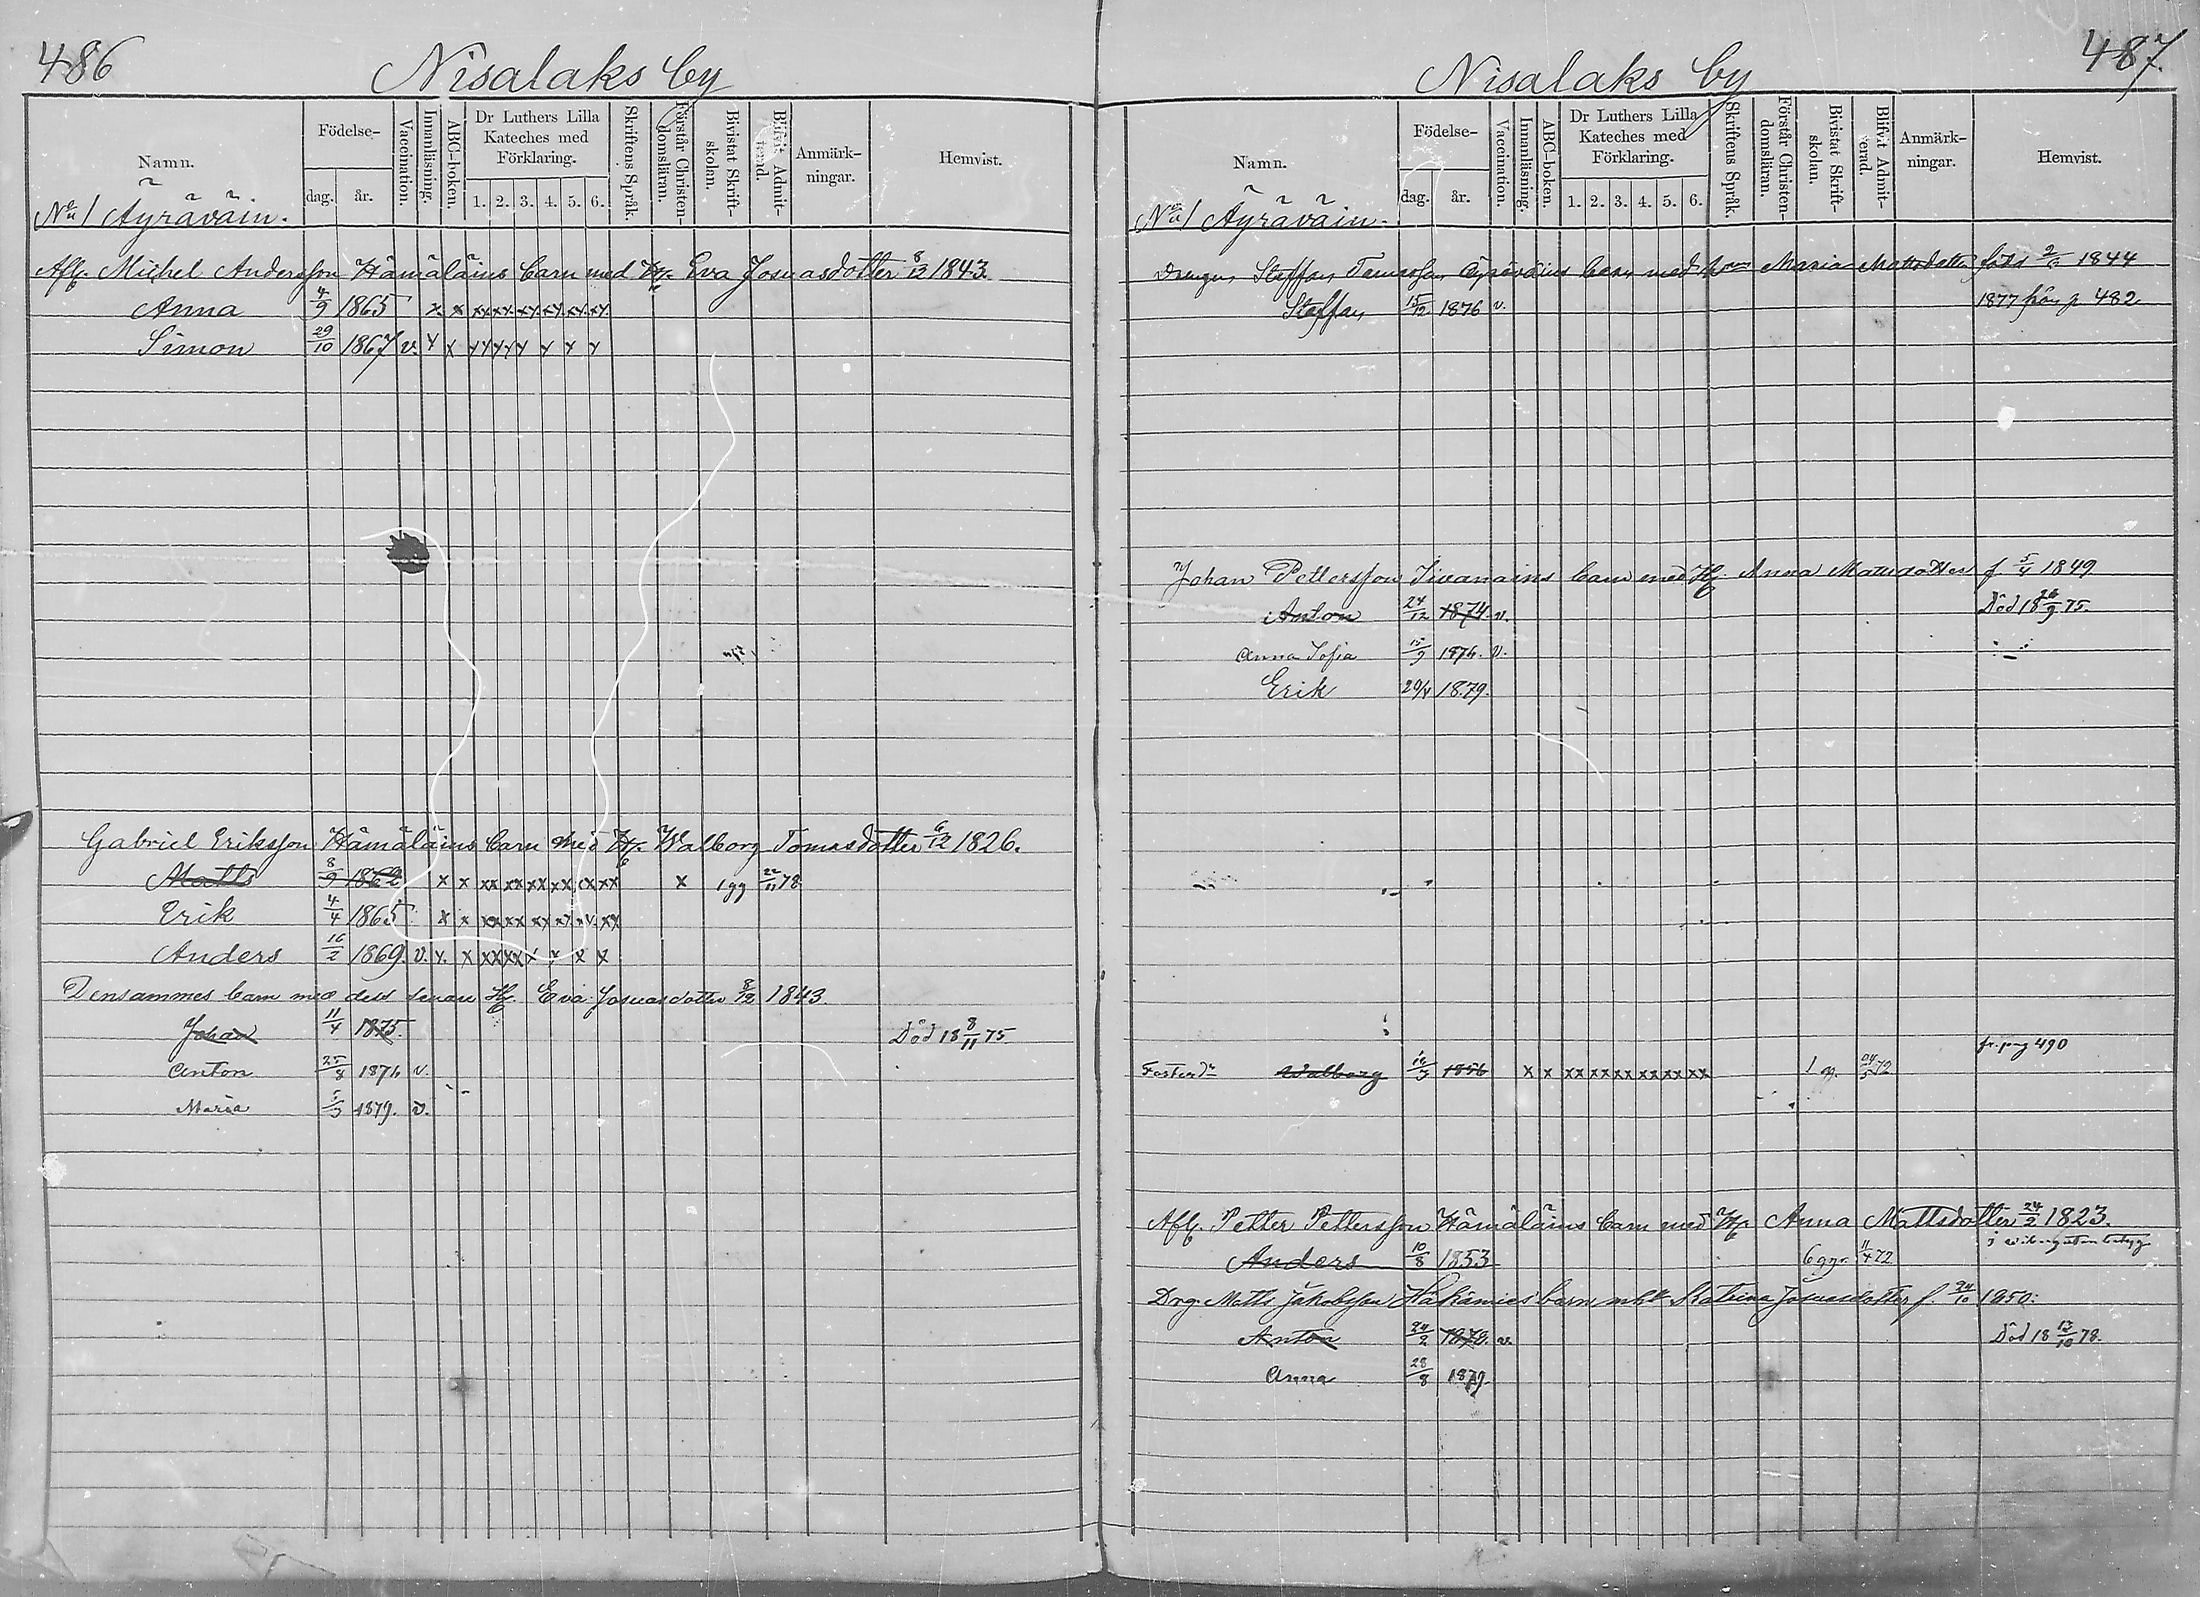 486
Nisalaks by
Namn.
Födelse-
dag.
år.
Vaccination.
Innanläsning.
ABC-boken.
Dr Luthers Lilla
Kateches med
Förklaring.
1. 2. 3. 4. 5. 6.
Skriftens Språk.
Förstår Christen-
domsläran.
Bivistat Skrift-
skolan.
Blifvit Admit-
terad.
Anmärk-
ningar.
Hemvist.
No 1 Äyräväin.
Afl. Michel Andersson Hämäläins barn med H. Eva Josuasdotter 8/12 1843.
Anna 4/9 1865 x x xx xx xx xx xx xx
Simon 29/10 1867 v. x x xx xx x x x x
Gabriel Eriksson Hämäläins barn med H. Walborg Tomasdotter 6/12 1826.
Matts 8/9 1862 x x xx xx xx xx xx xx x 1 gg 22/11 78
Erik 4/4 1865 x x xx xx xx xx xx xx
Anders 16/2 1869. v. x. x xx xx x x x x
Densammes barn med dess senare H. Eva Josuasdotter 8/12 1843.
Johan 11/4 1875. Död 18 8/11 75.
Anton 25/8 1876 v.
Maria 1879. v.
487.
Nisalaks by
Namn.
Födelse-
dag.
år.
Vaccination.
Innanläsning.
ABC-boken.
Dr Luthers Lilla
Kateches med
Förklaring.
1. 2. 3. 4. 5. 6.
Skriftens Språk.
Förstår Christen-
domsläran.
Bivistat Skrift-
skolan.
Blifvit Admit-
terad.
Anmärk-
ningar.
Hemvist.
No 1 Äyräväin.
Drengen Staffan Äyräväins barn med Maria Mattsdotter född 1844
Staffan 15/12 1876 v. 1877 från p 482
Johan Pettersson Tivanains barn med H. Anna Matsdotter f. 5/4 1849
Anton 24/12 1874. v. Död 18 26/9 75.
Anna Sofia 15/9 1876. v.
Erik 20/4 1879.
fr. pag 490
Walborg 1856 x x xx xx xx xx xx xx 1 g. 72
Afl. Petter Pettersson Hämäläins barn med H. Anna Mattsdotter 24/2 1823.
Anders 10/8 1853 6 ggr. 11/4 72
Drg. Matts Jakobsson barn Katrina Josuasdotter f. 24/10 1850.
Anton 24/2 1878. v. Död 18 12/10 78.
Anna 28/8 1879